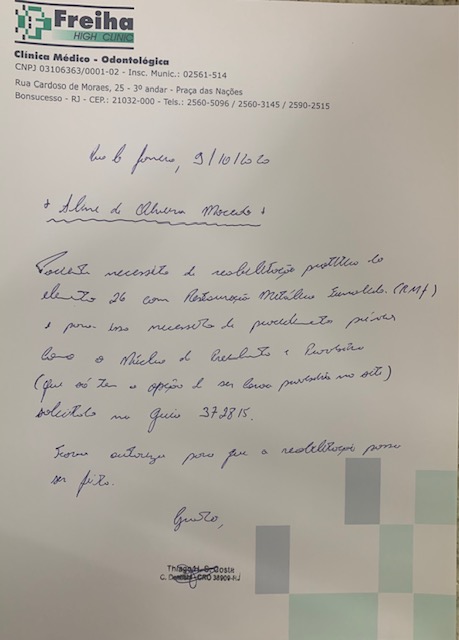 Freiha
HIGH CLINIC
Clínica Médico - Odontológica
CNPJ 03106363/0001-02 - Insc. Munic.: 02561-514
Rua Cardoso de Moraes, 25 - 3º andar - Praça das Nações
Bonsucesso - RJ - CEP.: 21032-000 - Tels.: 2560-5096 / 2560-3145 / 2590-2515
Rio de Janeiro, 9/10/2020
Aline de Oliveira Macedo
Paciente necessita de reabilitação protética do
elemento 26 com Restauração Metálica Fundida (RMF)
e para isso necessita de procedimento prévios
como o Núcleo de Preenchimento e Provisório
(que só tem a opção de ser no site)
solicitado na Guia 372815.
Favor autorizar para que a reabilitação possa
ser feita.
Grato,
Thiago H. S. Costa
C. Dentista - CRO 38909-RJ